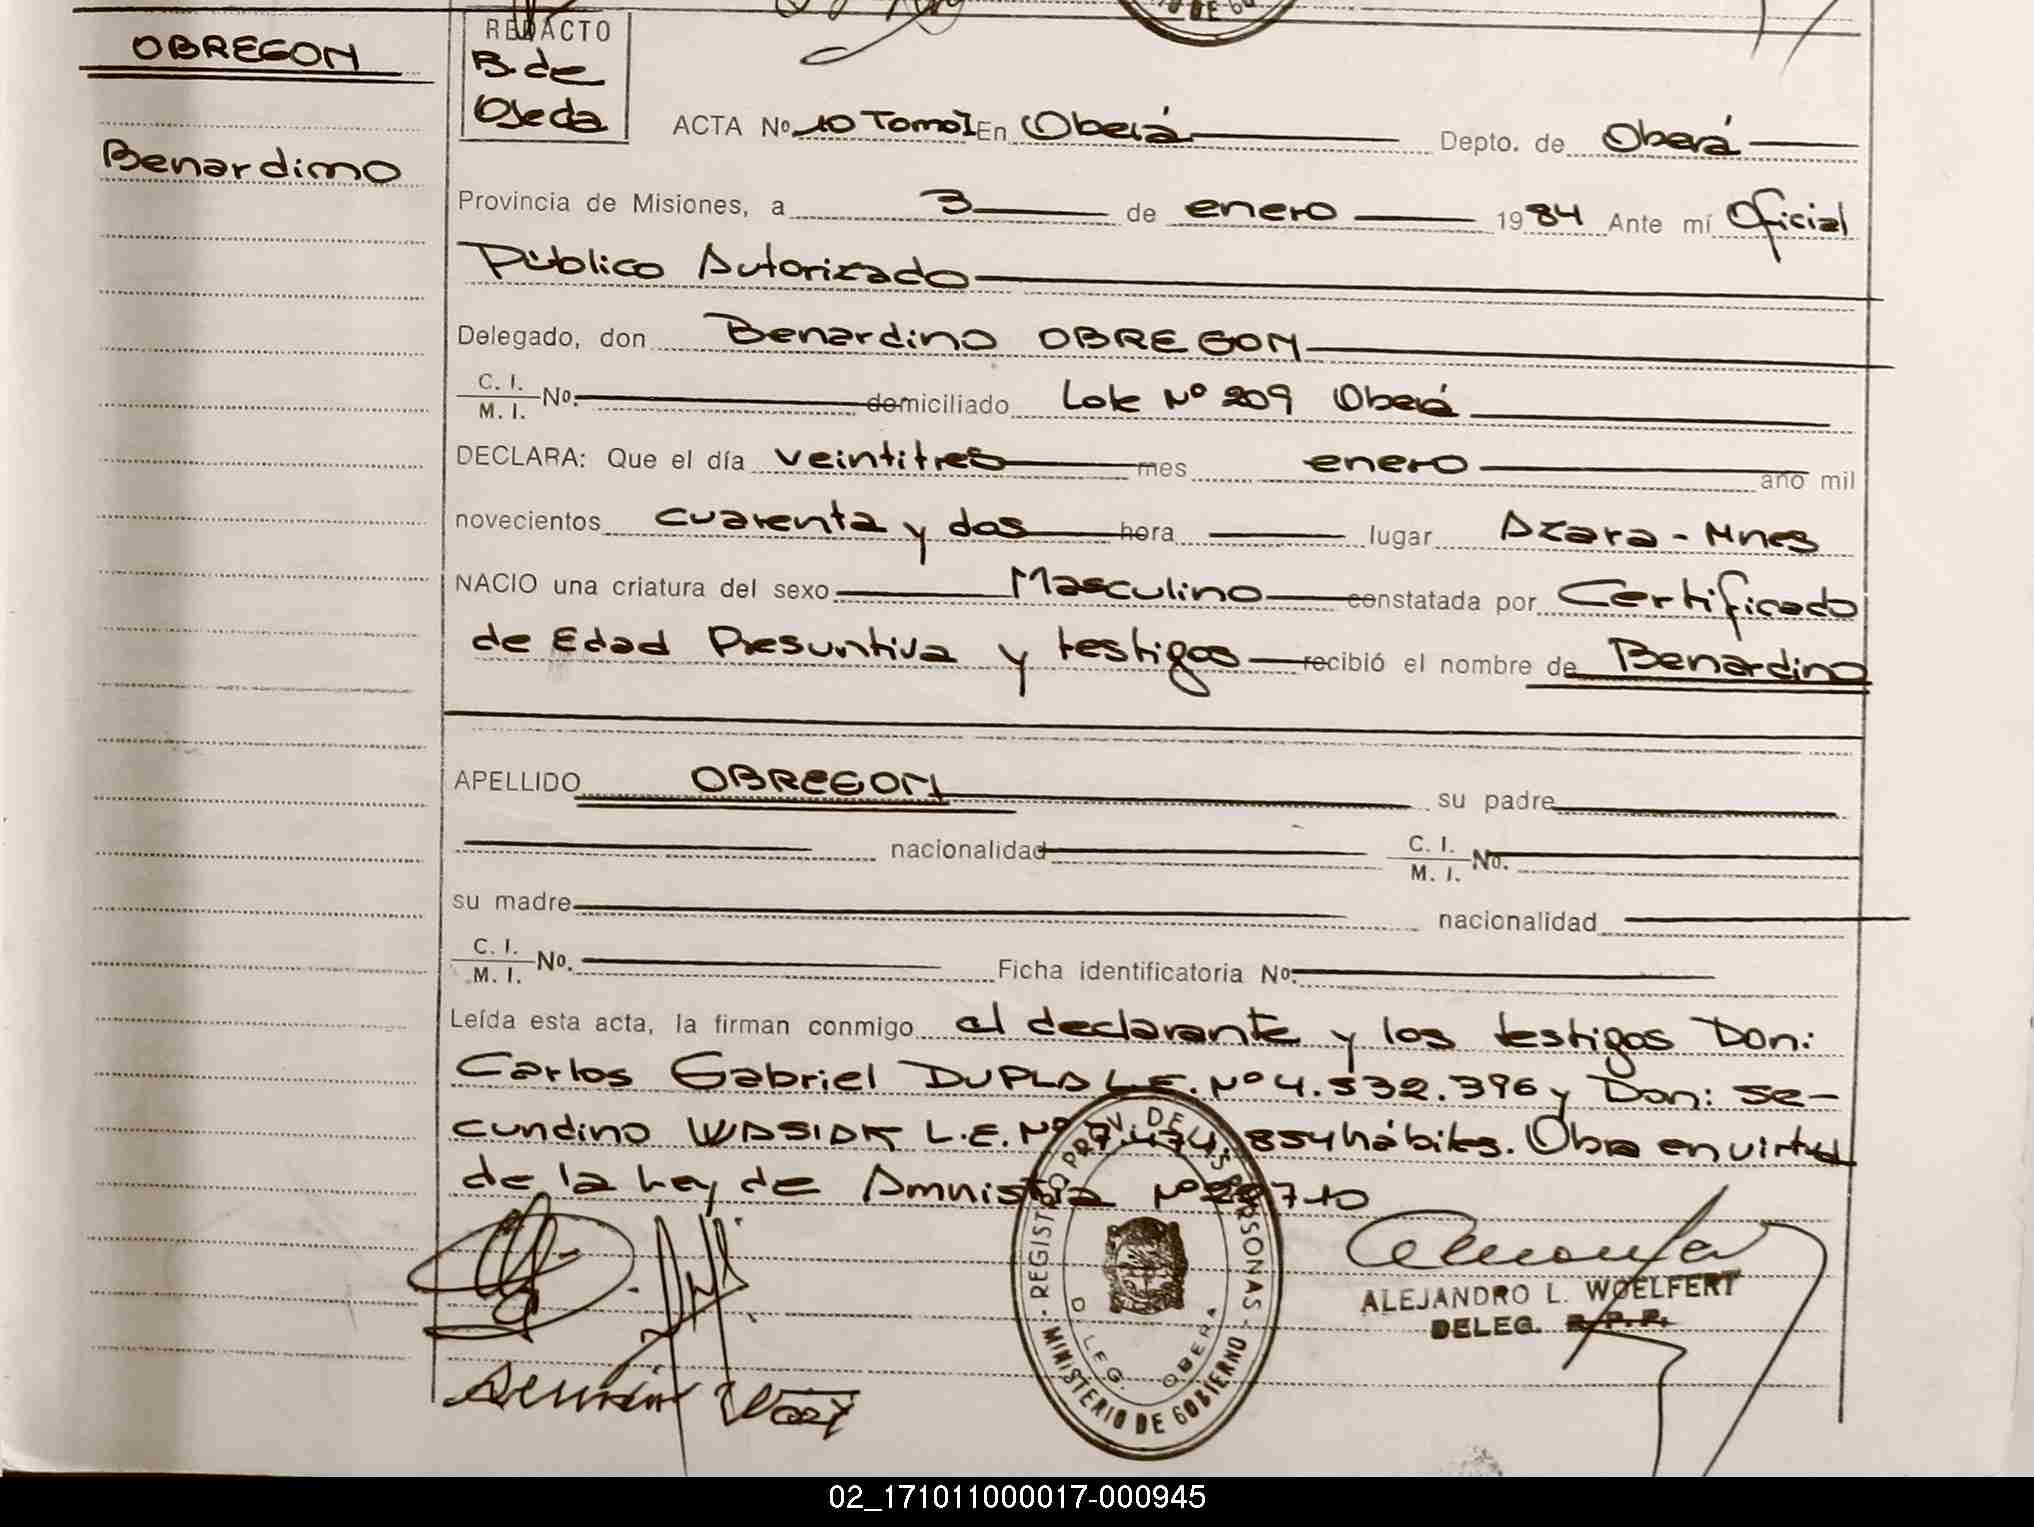 OBREGON
Benardino
REDACTO
B. de
Ojeda
ACTA No 10 Tomo I En Oberá Depto. de Oberá
Provincia de Misiones, a 3 de enero 1984 Ante mí Oficial
Público Autorizado
Delegado, don Benardino OBREGON
C. I. M. I. No. domiciliado Lote Nº 209 Oberá
DECLARA: Que el día veintitres mes enero año mil
novecientos cuarenta y dos hora lugar Azara - Mnes
NACIO una criatura del sexo Masculino constatada por Certificado
de Edad Presuntiva y testigos recibió el nombre de Benardino
APELLIDO OBREGON su padre
nacionalidad C. I. M. I. No.
su madre nacionalidad
C. I. M. I. No. Ficha identificatoria No.
Leída esta acta, la firman conmigo el declarante y los testigos Don:
Carlos Gabriel DUPLA L.E. Nº 4.532.396 y Don: Se-
cundino WASIAK L.E. Nº 7.474.854 hábiles. Obra en virtud
de la Ley de Amnistia Nº 22710
REGISTRO PROV. DE LAS PERSONAS
DELEG. OBERA
MINISTERIO DE GOBIERNO
ALEJANDRO L. WOELFERT
DELEG. R.P.P.
02_171011000017-000945